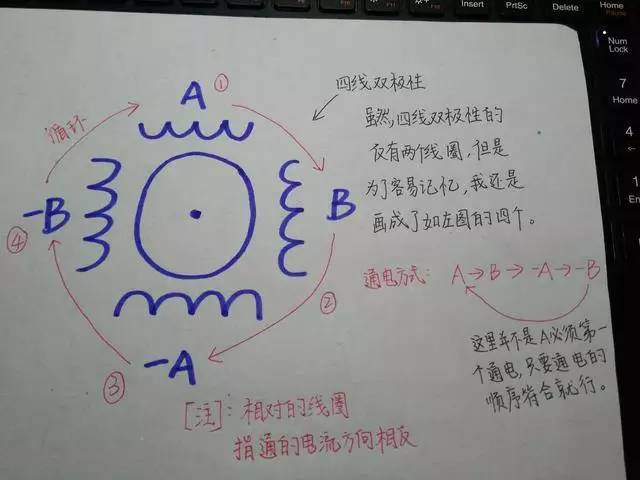 Insert
PrtSc
Delete
Home
Pause
Num
Lock
7
Home
4
1
A
①
循环
B
-B
④
②
-A
③
四线双极性
虽然,四线双极性的
仅有两个线圈,但是
为了容易记忆,我还是
画成了如左图的四个。
通电方式: A→B→-A→-B
这里并不是A必须第一
个通电,只要通电的
顺序符合就行。
[注]: 相对的线圈
指通的电流方向相反